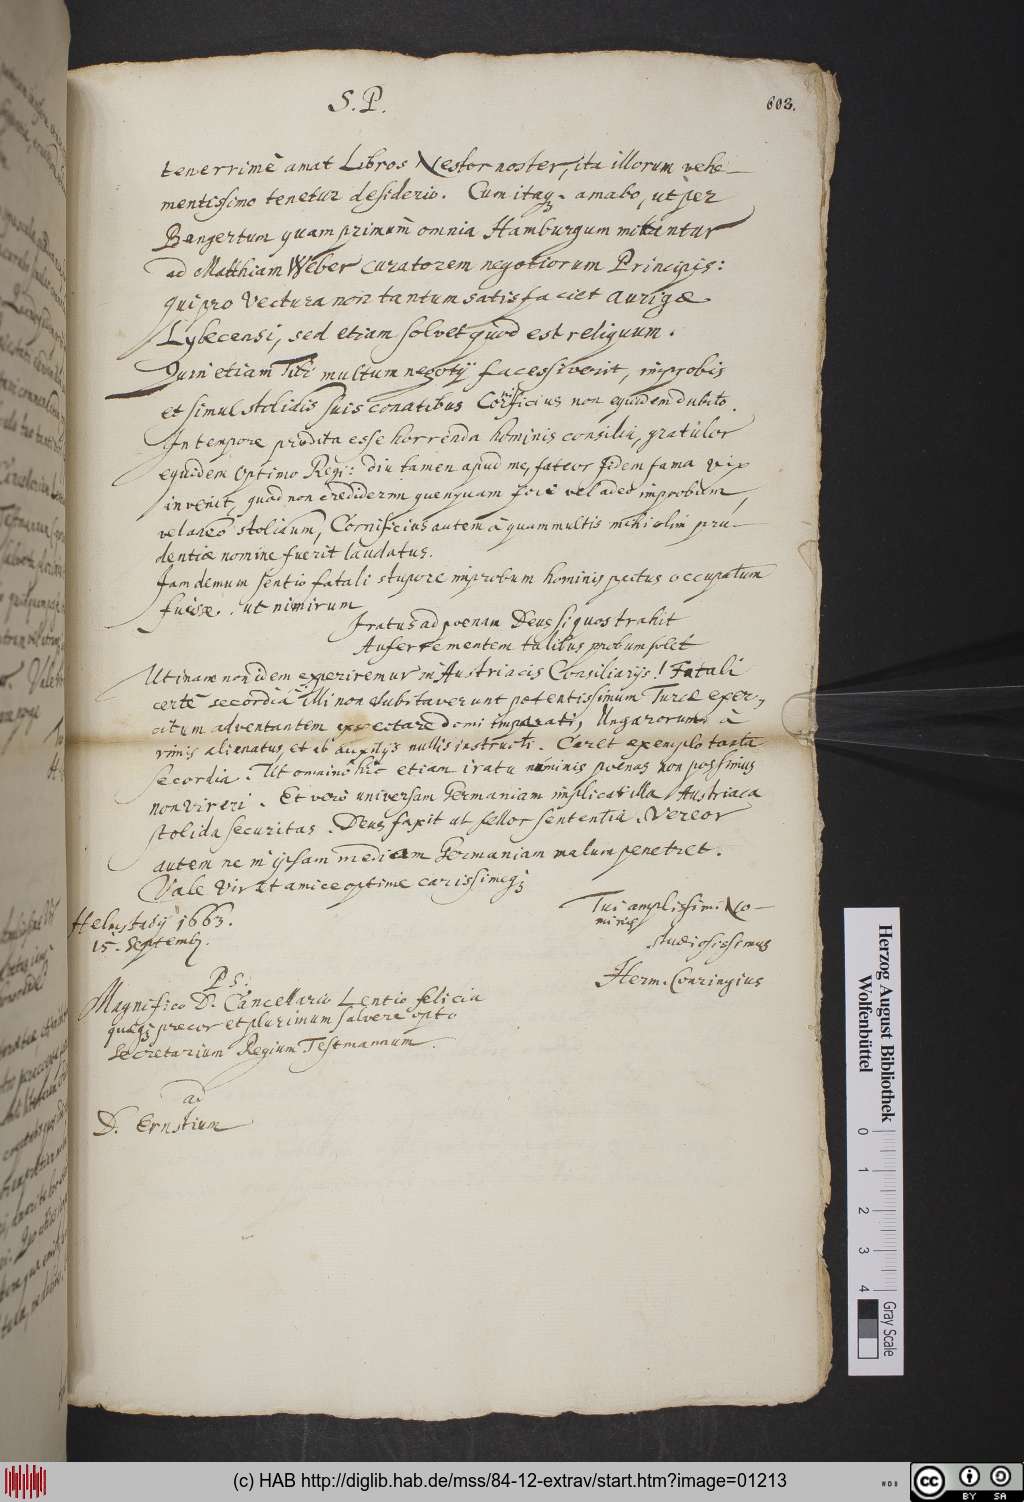 S. P.
603.
tenerrimè amat Libros Nestor noster, ita illorum vehe-
mentissimo tenetur desiderio. Cum itaq; amabo, ut per
Bangertum quam primùm omnia Hamburgum mittantur
ad Matthiam Weber curatorem negotiorum Principis:
qui pro Vectura non tantum satisfaciet aurigæ
Lybecensi, sed etiam solvet quod est reliquum.
Quin etiam Tibi multum negotij facessiverit, improbis
et simul stolidis suis conatibus Cornificius non equidem dubito.
In tempore prodita esse horrenda hominis consilia, gratulor
equidem Optimo Regi: diu tamen apud me, fateor fidem fama vix
invenit, quod non crediderim quenquam fore vel adeo improbum,
vel adeo stolidum, Cornificius autem à quammultis mihi olim pru-
dentiæ nomine fuerit laudatus.
Jam demum sentio fatali stupore improbum hominis pectus occupatum
fuisse. ut nimirum
Iratus ad poenam Deus si quos trahit
Auferre mentem talibus probum solet
Utinam non idem experiremur in Austriacis Consiliarijs! Fatali
certè secordiâ illi non dubitaverunt potentissimum Turcæ exer-
citum adventantem expectare domi imparati, Ungarorum à
nimis alienatus, et ab auxilijs nullis instructi. Caret exemplo tanta
secordia. Ut omninò hîc etiam irati numinis poenas non possimus
non vireri. Et verò universam Germaniam implicat illa Austriaca
stolida securitas. Deus faxit ut fellor sententia. Vereor
autem ne in ipsam mediam Germaniam malum penetret.
Vale Vir et amice optime carissimeq;
Helmstadij 1663.
15. Septemb.
Tui amplissimi No-
minis
studiosissimus
Herm. Conringius
PS:
Magnifico D. Cancellario Lentio felicia
quæq; precor et plurimum salvere opto
Secretarium Regium Testmannum.
ad
D. Ernstium
Herzog August Bibliothek
Wolfenbüttel
0 1 2 3 4
Gray Scale
(c) HAB http://diglib.hab.de/mss/84-12-extrav/start.htm?image=01213
cc BY SA